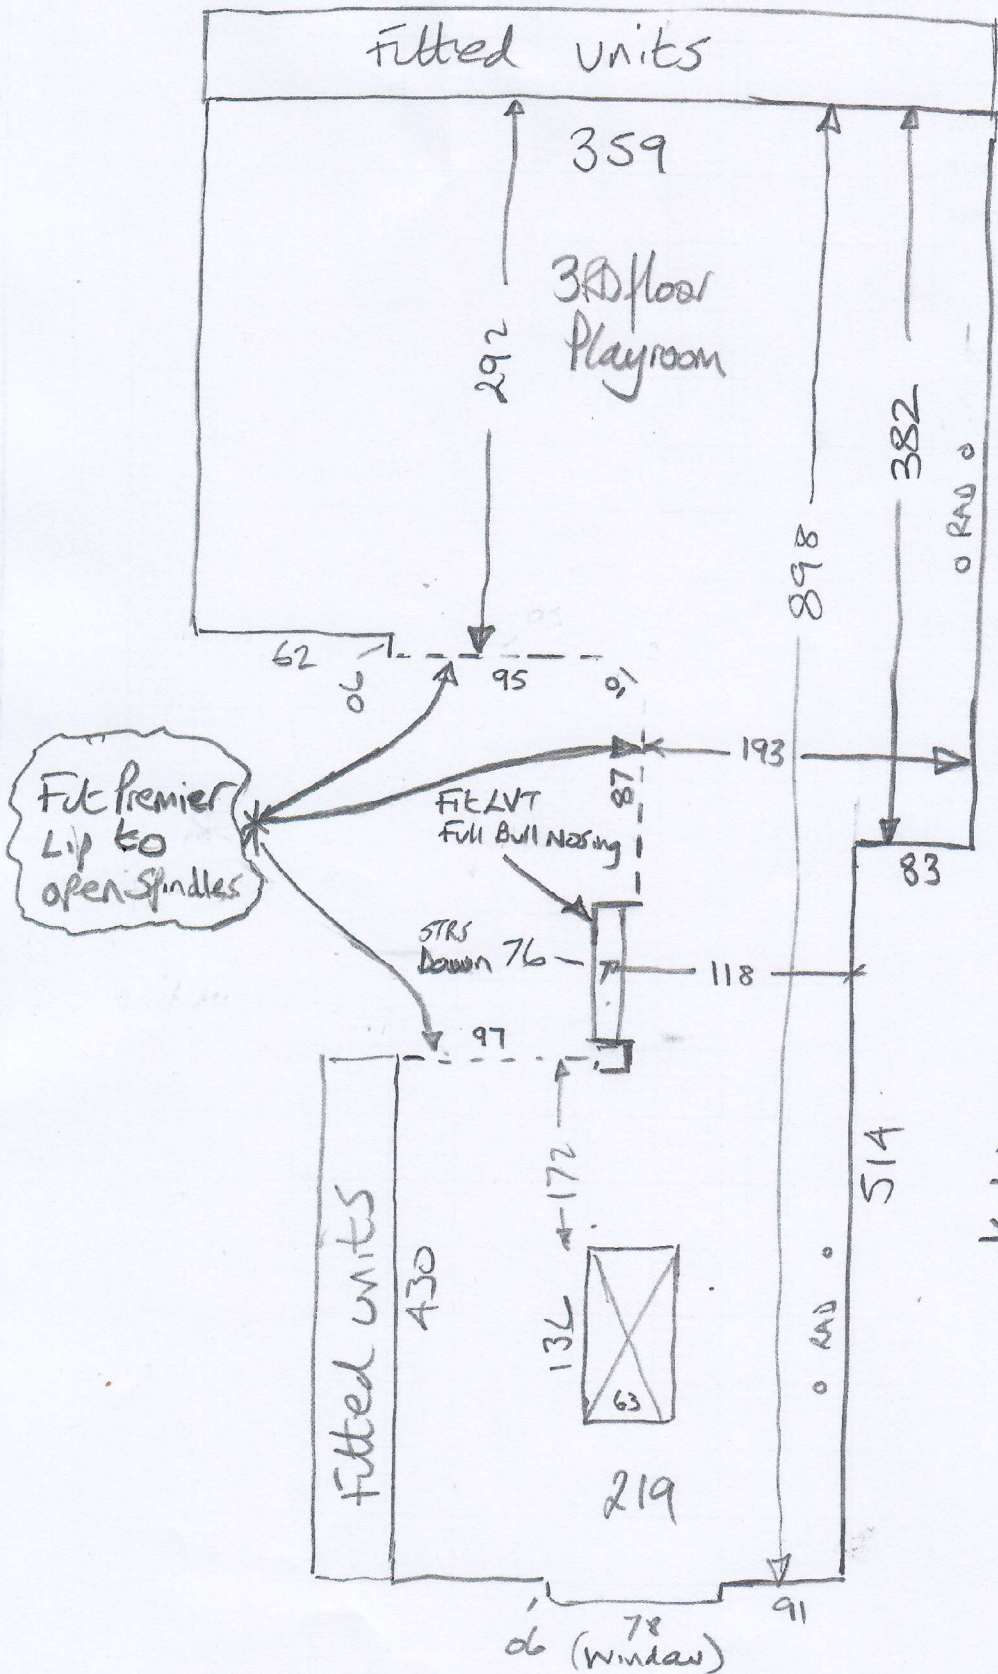 Fitted units
359
3RD floor
Playroom
292
898
382
o RAD o
62
06
95
01
193
87
83
Fit Premier
Lip to
open Spindles
Fit LVT
Full Bull Nosing
STRS
Down 76
118
97
172
514
Fitted units
430
132
63
o RAD o
219
06
78
(window)
91